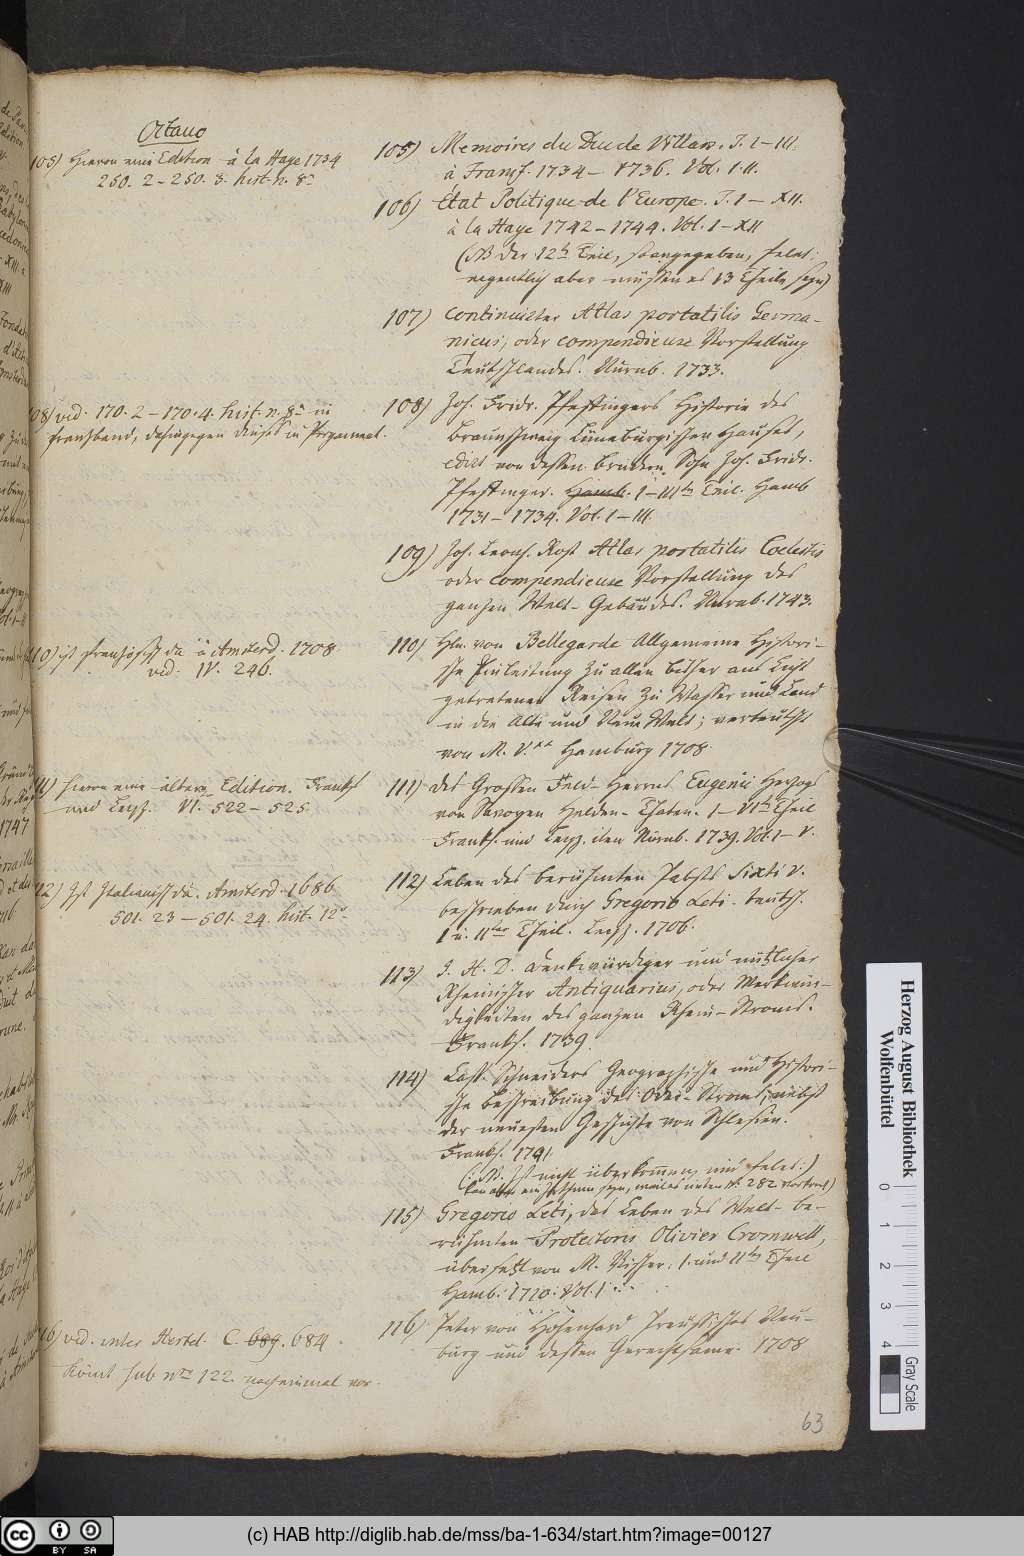 Octavo
105) Hievon eine Edition à la Haye 1734
250. 2 – 250. 3. hist. n. 8°
105) Memoires du Duc de Villars. T. I – III.
à Francf. 1734 – 1736. Vol. I. II.
106) Etat Politique de l'Europe. T. I – XII.
à la Haye 1742 – 1744. Vol. I – XII
(NB der 12te Theil, so angegeben, fehlet;
eigentlich aber müssen es 13 Theile seyn)
107) Continuirter Atlas portatilis Germa-
nicus, oder compendieuse Vorstellung
Teutschlandes. Nürnb. 1733.
108) vid. 170. 2 – 170. 4. hist. n. 8° in
Franzband, dahingegen dieses in Pergament.
108) Joh. Fridr. Pfeffingers Historie des
Braunschweig Lüneburgischen Hauses,
edirt von dessen Bruders Sohn Joh. Fridr.
Pfeffinger. Hamb. I – IIIter Teil. Hamb
1731 – 1734. Vol. I – III.
109) Joh. Leonh. Rost Atlas portatilis Coelestis
oder compendieuse Vorstellung des
ganzen Welt-Gebäudes. Nürnb. 1743.
110) ist französisch da à Amsterd. 1708
vid. IV. 246.
110) Hln. von Bellegarde Allgemeine Histori-
sche Einleitung zu allen bisher ans Licht
getretenen Reisen zu Wasser und Land
in die Alte und Neue Welt; verteutscht
von M. V.** Hamburg 1708.
111) hievon eine ältere Edition. Franckf
und Leipz. VI. 522 – 525.
111) des Grossen Feld-Herrns Eugenii Herzogs
von Savoyen Helden-Thaten. I – VIter Theil
Franckf. und Leipz. item Nürnb. 1739. Vol. I – V.
112) Ist Italienisch da. Amsterd. 1686
501. 23 – 501. 24. hist. 12°
112) Leben des berühmten Pabsts Sixti V.
beschrieben durch Gregorio Leti. teutsch.
I u. IIter Theil. Leipz. 1706.
113) J. H. D. Denkwürdiger und nützlicher
Rheinischer Antiquarius, oder Merkwür-
digkeiten des ganzen Rhein-Stroms.
Franckf. 1739.
114) Casp. Schneiders Geographische und Histori-
sche Beschreibung des Oder-Stroms; nebst
der neuesten Geschichte von Schlesien.
Franckf. 1741.
(: NB. Ist nicht überkommen und fehlet:)
kan aber ein Irrthum seyn, weil es unten N. 282 vorkomt)
115) Gregorio Leti, das Leben des Welt-be-
rühmten Protectoris Olivier Cromwell,
übersetzt von M. Visser. I. und IIter Theil
Hamb. 1710. Vol. I
116) vid. inter Hertel. C. 689. 684.
kömt sub nro 122. nocheinmal vor.
116) Peter von Hohenhard Preussisches Neu-
burg und dessen Gerechtsame. 1708
63
Herzog August Bibliothek
Wolfenbüttel
0 1 2 3 4
Gray Scale
(c) HAB http://diglib.hab.de/mss/ba-1-634/start.htm?image=00127
cc BY SA